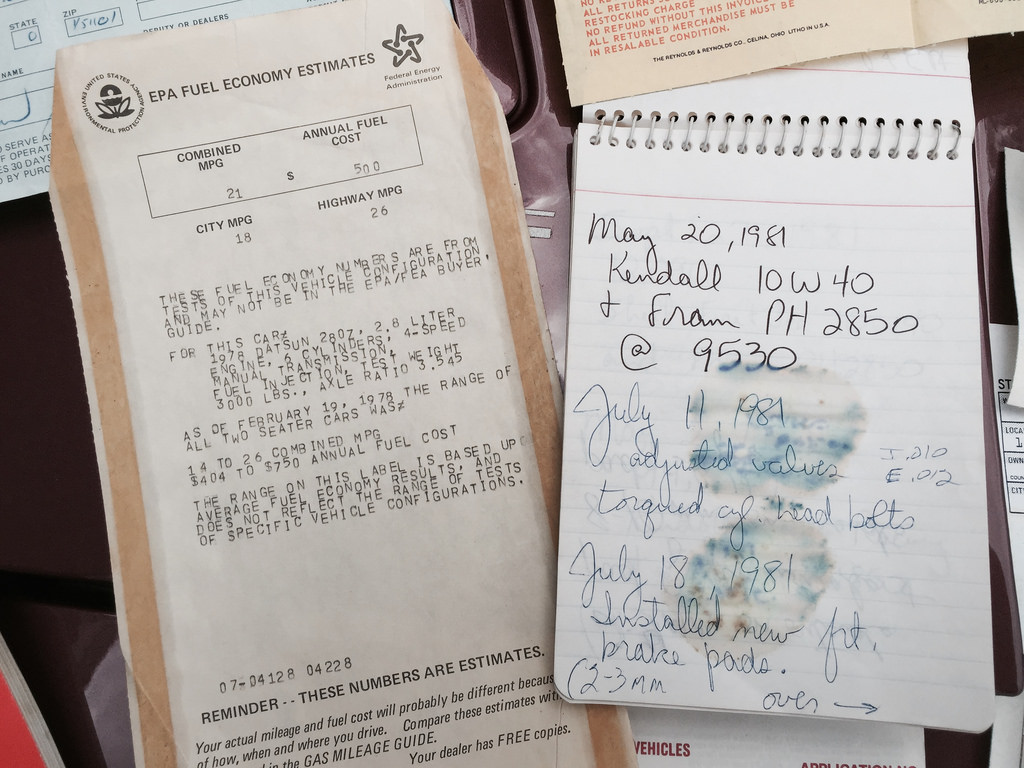 STATE
ZIP
0
VS1101
DEPUTY OR DEALERS
NAME
SERVE AS
OF OPERAT
ES 30 DAYS
D BY PURC
UNITED STATES
ENVIRONMENTAL PROTECTION AGENCY
EPA FUEL ECONOMY ESTIMATES
Federal Energy
Administration
COMBINED
MPG
21
ANNUAL FUEL
COST
$ 500
CITY MPG
18
HIGHWAY MPG
26
THESE FUEL ECONOMY NUMBERS ARE FROM
TESTS OF THIS VEHICLE CONFIGURATION,
AND MAY NOT BE IN THE EPA/FEA BUYER,
GUIDE.
FOR THIS CAR%
1978 DATSUN 280Z, 2.8 LITER
ENGINE, 6 CYLINDERS, 4-SPEED
MANUAL TRANSMISSION,
FUEL INJECTION, TEST WEIGHT
3000 LBS., AXLE RATIO 3.545
AS OF FEBRUARY 19, 1978 THE RANGE OF
ALL TWO SEATER CARS WAS%
14 TO 26 COMBINED MPG
$404 TO $750 ANNUAL FUEL COST
THE RANGE ON THIS LABEL IS BASED UPO
AVERAGE FUEL ECONOMY RESULTS, AND
DOES NOT REFLECT THE RANGE OF TESTS
OF SPECIFIC VEHICLE CONFIGURATIONS.
07-04128 04228
REMINDER - - THESE NUMBERS ARE ESTIMATES.
Your actual mileage and fuel cost will probably be different becaus
of how, when and where you drive. Compare these estimates wit
d in the GAS MILEAGE GUIDE.
Your dealer has FREE copies.
ALL RETURNS
RESTOCKING CHARGE
NO REFUND WITHOUT THIS INVOICE
ALL RETURNED MERCHANDISE MUST BE
IN RESALABLE CONDITION.
THE REYNOLDS & REYNOLDS CO., CELINA, OHIO LITHO IN U.S.A.
May 20, 1981
Kendall 10W40
+ Fram PH2850
@ 9530
July 11, 1981
adjusted valves I .010
E .012
torqued cyl. head bolts
July 18, 1981
Installed new frt.
brake pads.
(2-3mm
over →
VEHICLES
APPLICATION NO
ST
LOCA
1
OWN
COUN
CITY